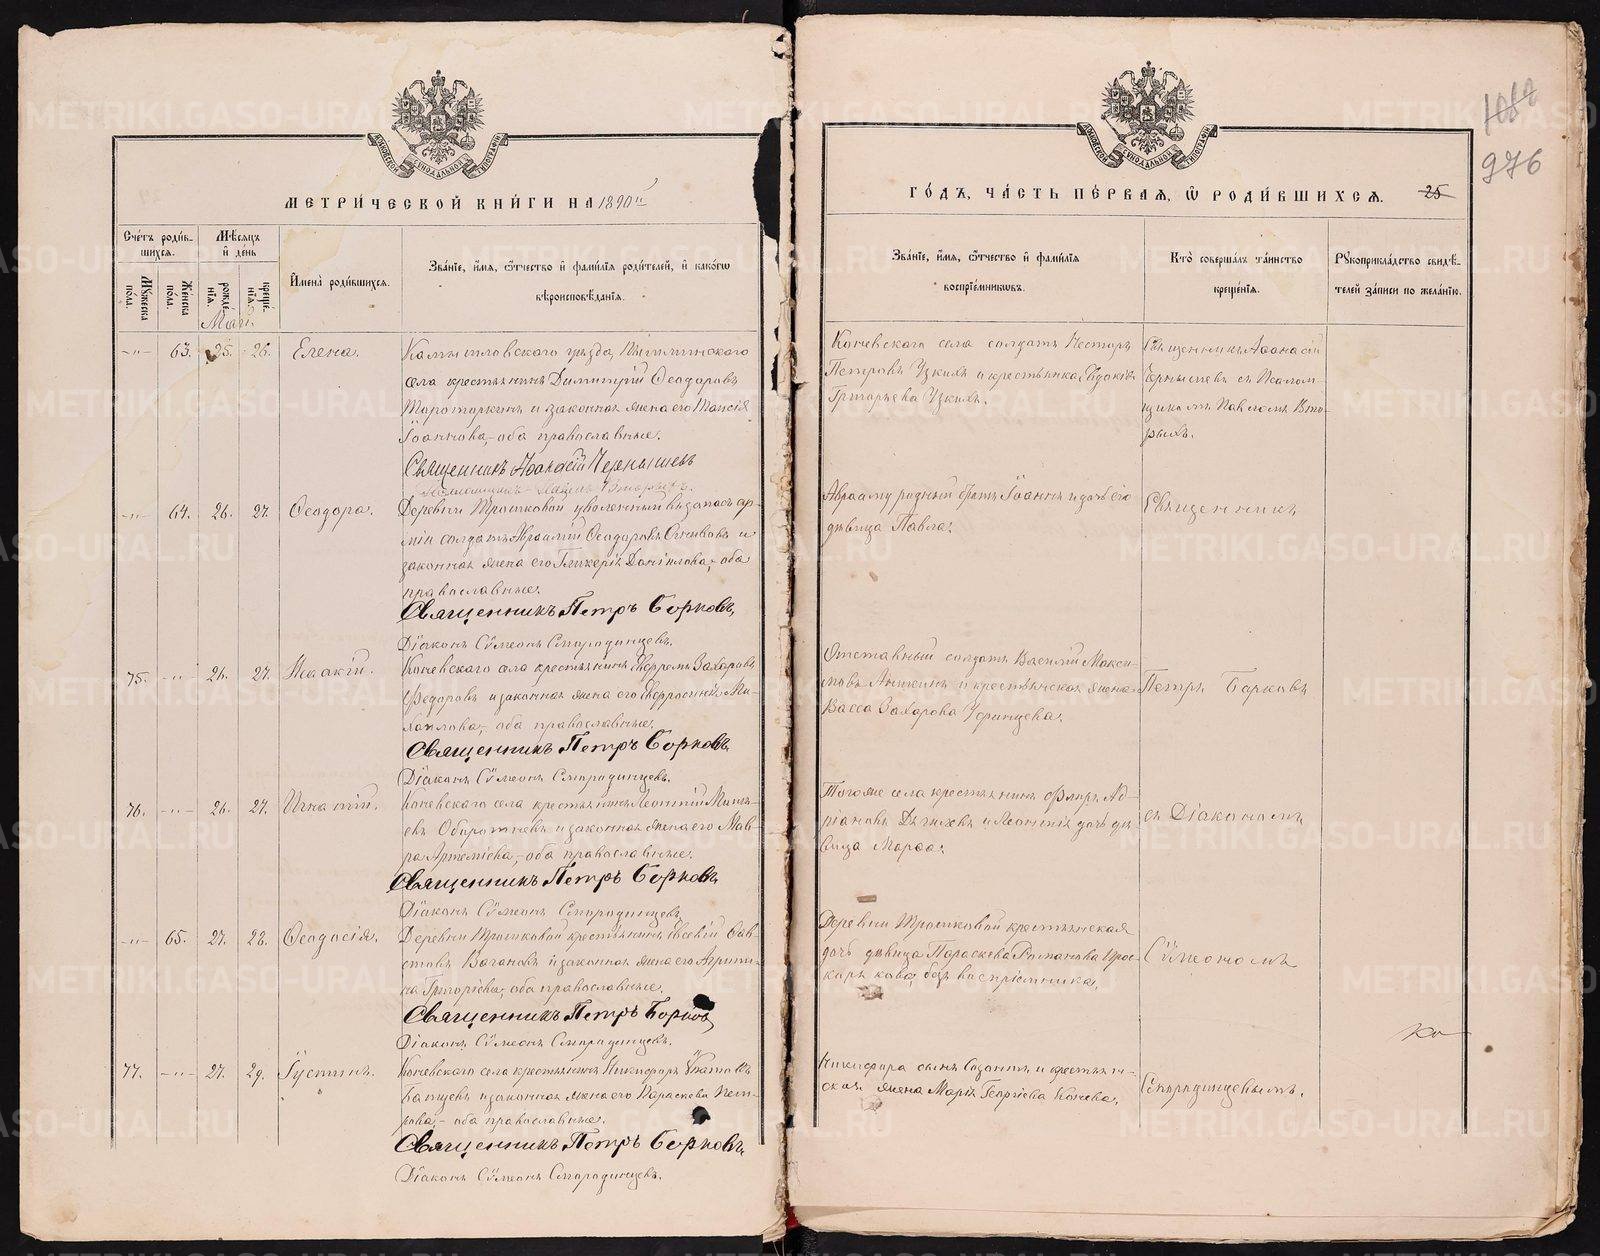 МЕТРИ́ЧЕСКОЙ КНИ́ГИ НА 1890й
Сче́тъ роди́в-
шихсѧ.
Мѣ́сѧцъ
и҆ де́нь
Мꙋ́жеска
по́ла.
Же́нска
по́ла.
рожде́-
нїѧ.
креще́-
нїѧ.
И҆мена̀ роди́вшихсѧ.
Зва́нїе, и҆́мѧ, ѻ҆́тчество и҆ фамі́лїѧ роди́телей, и҆ како́гѡ
вѣроисповѣ́данїѧ.
Май.
63. 25. 26. Елена.
Камышловскаго уѣзда, Пышминскаго
села крестьянинъ Димитрій Ѳеодоровъ
и законная жена его Таисія
Іоаннова, оба православные.
Священникъ Аѳанасій Чернышевъ
64. 26. 27. Ѳеодора.
Деревни Трошковой уволенный въ запасъ ар-
міи солдатъ Авраамій Ѳеодоровъ и
законная жена его Гликерія Даніилова, оба
православные.
Священникъ Петръ Борковъ
Діаконъ Сѵмеонъ Смородинцевъ.
75. 26. 27. Исаакій.
Кочевскаго села крестьянинъ Ефремъ Захаровъ
Федоровъ и законная жена его Евфросинія Ми-
хаилова, оба православные.
Священникъ Петръ Борковъ
Діаконъ Сѵмеонъ Смородинцевъ.
76. 26. 27. Игнатій.
Кочевскаго села крестьянинъ Леонтій Минѣ-
евъ и законная жена его Мав-
ра Артеміева, оба православные.
Священникъ Петръ Борковъ
Діаконъ Сѵмеонъ Смородинцевъ
65. 27. 28. Ѳеодосія.
Деревни Трошковой крестьянинъ Евсевій Сав-
Вагановъ и законная жена его Агрипи-
на Григоріева, оба православные.
Священникъ Петръ Борковъ
Діаконъ Сѵмеонъ Смородинцевъ.
77. 27. 29. Іустинъ.
Кочевскаго села крестьянинъ Никифоръ
и законная жена его Параскева Пет-
рова, оба православные.
Священникъ Петръ Борковъ
Діаконъ Сѵмеонъ Смородинцевъ.
ГО́ДЪ, ЧА́СТЬ ПЕ́РВАѦ, Ѡ РОДИ́ВШИХСѦ.
25
976
Зва́нїе, и҆́мѧ, ѻ҆́тчество и҆ фамі́лїѧ
воспрїе́мникѡвъ.
Кто̀ соверша́лъ та́инство
креще́нїѧ.
Рꙋкоприкла́дство свидѣ́-
телей за́писи по жела́нїю.
Кочевскаго села солдатъ Несторъ
Петровъ Узкихъ и крестьянка Евдокія
Григорьева Узкихъ.
Священникъ Аѳанасій
Чернышевъ съ Псалом-
щикомъ Павломъ Вто-
рыхъ.
Аврааму родный братъ Іоаннъ и дочь его
дѣвица Павла.
Священникъ
Отставный солдатъ Василій Макси-
мовъ и крестьянская жена
Васса Захарова Уфинцева.
Петръ Борковъ
Того же села крестьянинъ Флоръ Ад-
ріановъ и Леонтія дочь дѣ-
вица Марѳа.
съ Діакономъ
Деревни Трошковой крестьянская
дочь дѣвица Параскева Романова Прос-
куръ кова, безъ воспріемника.
Сѵмеономъ
Никифора сынъ Созонтъ и крестьян-
ская жена Марія Георгіева Кочнева.
Смородинцевымъ.
METRIKI.GASO-URAL.RU